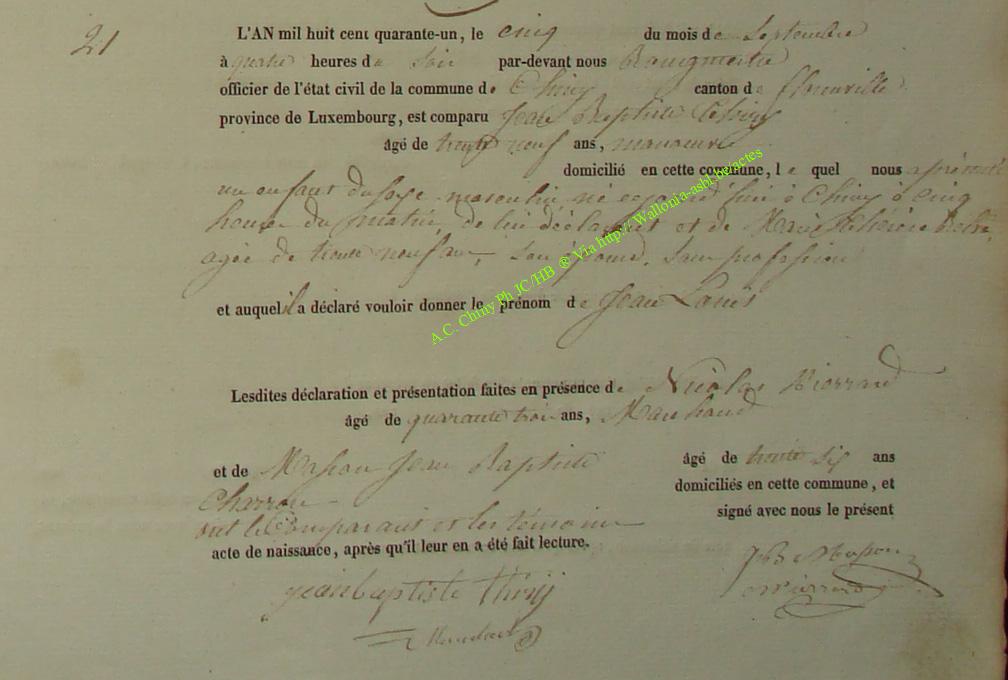 21
L'AN mil huit cent quarante-un, le cinq du mois de Septembre
à quatre heures du soir par-devant nous Bourgmestre
officier de l'état civil de la commune de Chiny canton de florenville
province de Luxembourg, est comparu Jean Baptiste
âgé de trente neuf ans, manoeuvre
domicilié en cette commune, le quel nous a présenté
un enfant du sexe masculin né ce jourd'hui à Chiny à cinq
heures du matin, de lui déclarant et de Marie
agée de trente neuf ans, son épouse, sans profession
et auquel il a déclaré vouloir donner le prénom de Jean Louis
Lesdites déclaration et présentation faites en présence de Nicolas Pierrard
âgé de quarante trois ans, Marchand
et de Mahon Jean Baptiste âgé de trente six ans
Charron domiciliés en cette commune, et
ont le Comparant et les témoins signé avec nous le présent
acte de naissance, après qu'il leur en a été fait lecture.
jean baptiste JB Mahon
Pierrard
A.C. Chiny Ph JC/HB ® Via http://Wallonia-asbl.be/actes